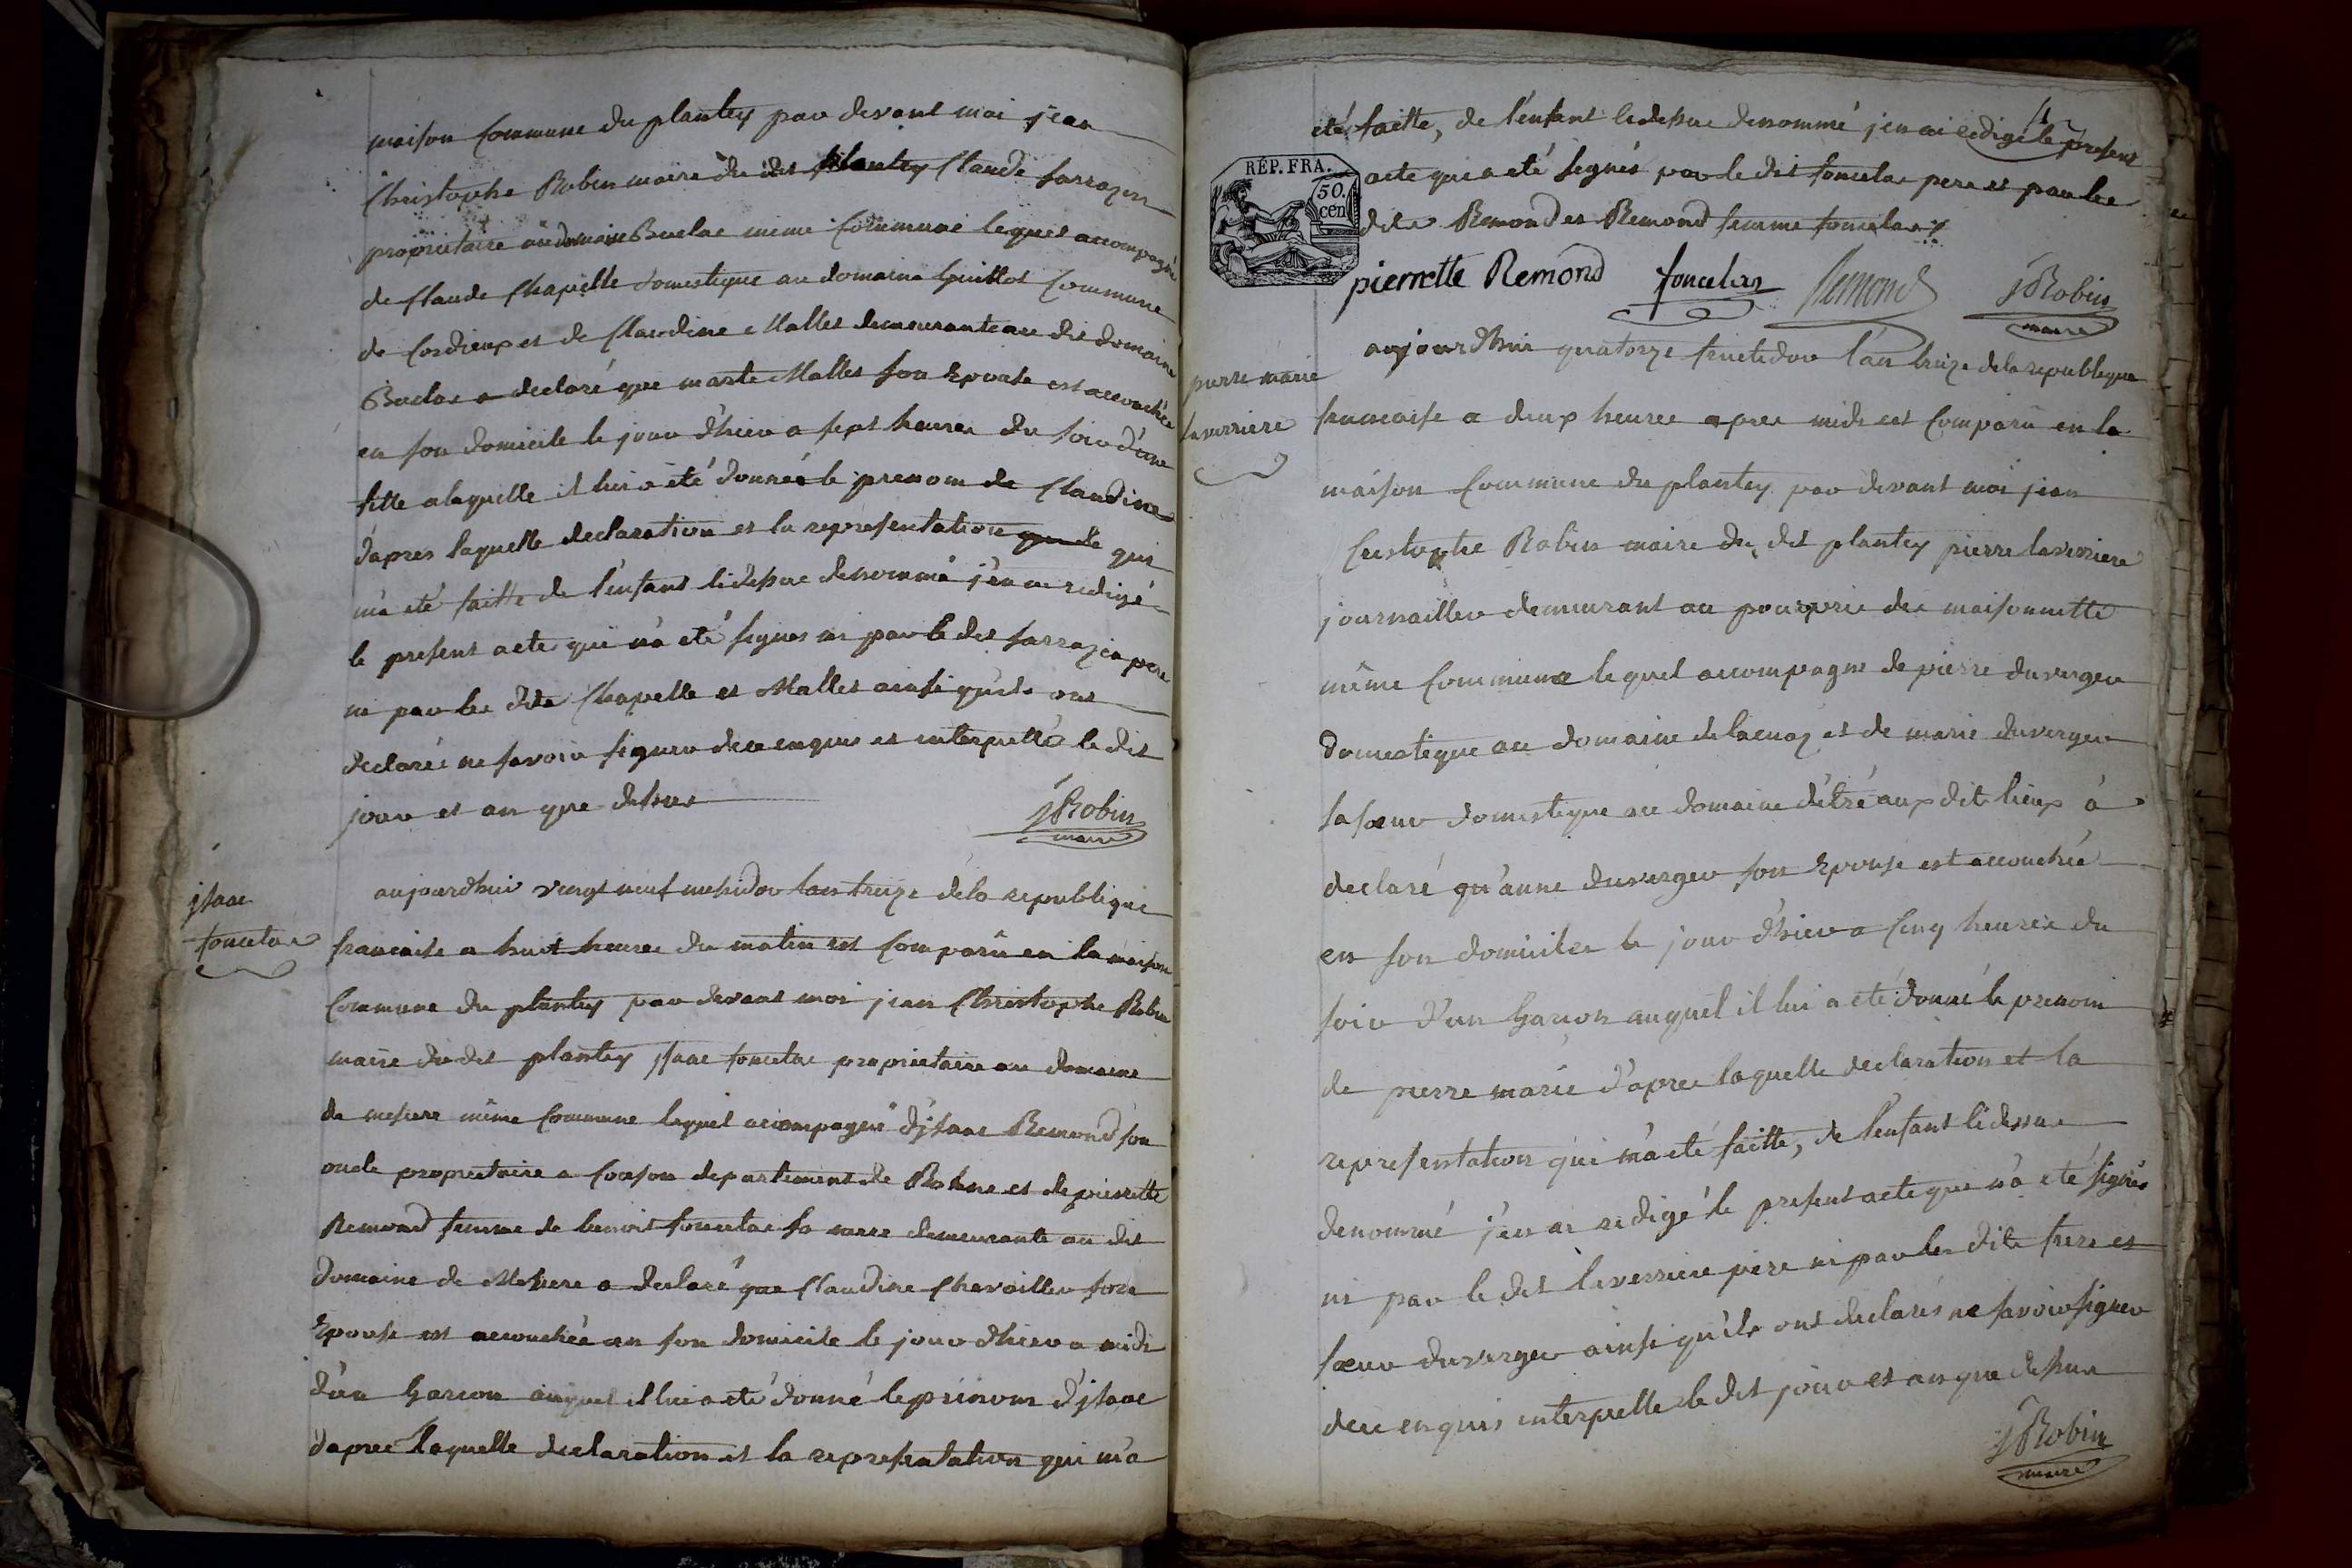 maison Commune du plantey par devant moi jean
Christophe Robin maire du dit plantey Claude sarrazin
proprietaire au domaine Buclas même Commune lequel accompagné
de Claude Chapelle domestique au domaine Guillot Commune
de Cordieux et de Claudine Mallet demeurante au dit domaine
Buclas a declaré que marte Mallet son Epouse est accouchée
en son domicile le jour d'hier a sept heures du soir d'une
fille a laquelle il lui a été donnée le prenom de Claudine
d'apres laquelle declaration et la representation qui
m'a eté faitte de l'enfant cidessus denommé j'en ai redigé
le present acte qui n'a eté signés ni par le dit sarrazin pere
ni par les dits Chapelle et Mallet ainsi qu'ils ont
declarés ne savoir signer dece enquis et interpellé le dit
jour et an que dessus
JRobin
maire
jsaac
foncelas
aujourdhui vingt neuf messidor lan treize de la republique
francaise a huit heures du matin est Comparû en la maison
Commune du plantey par devant moi jean Christophe Robin
maire du dit plantey jsaac foncelas proprietaire au domaine
de messere même Commune lequel accompagné d'jsaac Remond son
oncle proprietaire a departement de Rohne et de pierrette
Remond femme de benoit foncelas sa mere demeurante au dit
domaine de Messere a declaré que Claudine Chevailler son
Epouse est accouchée en son domicile le jour d'hier a midi
d'un Garcon auquel il lui a eté donné le prénom d'jsaac
d'apres laquelle declaration et la representation qui m'a
eté faitte, de l'enfant cidessus denommé j'en ai redigé le present
acte qui a eté signés par le dit foncelas pere et par les
dits Remond et Remond femme foncelas
RÉP. FRA.
50.
cen
pierrette Remond foncelas Remond JRobin
maire
pierre marie
laverriere
aujourdhui quatorze fructidor l'an treize de la republique
francaise a deux heures apres midi est Comparû en la
maison Commune du plantey par devant moi jean
Cristophe Robin maire du dit plantey pierre laverriere
journailler demeurant au pourprie des maisonnette
même Commune lequel accompagne de pierre duverger
domestique au domaine de et de marie duverger
sa sœur domestique au domaine d'étré aux dits lieux à
declaré qu'anne duverger son Epouse est accouchée
en son domicile le jour d'hier a Cinq heures du
soir d'un Garçon auquel il lui a eté donné le prenom
de pierre marie d'apres laquelle declaration et la
representation qui m'a eté faitte, de l'enfant cidessus
denommé j'en ai redigé le present acte qui n'a eté signés
ni par le dit laverriere pere ni par les dits frere et
sœur duverger ainsi qu'ils ont declarés ne savoir signer
dece enquis interpelle le dit jour et an que dessus
JRobin
maire